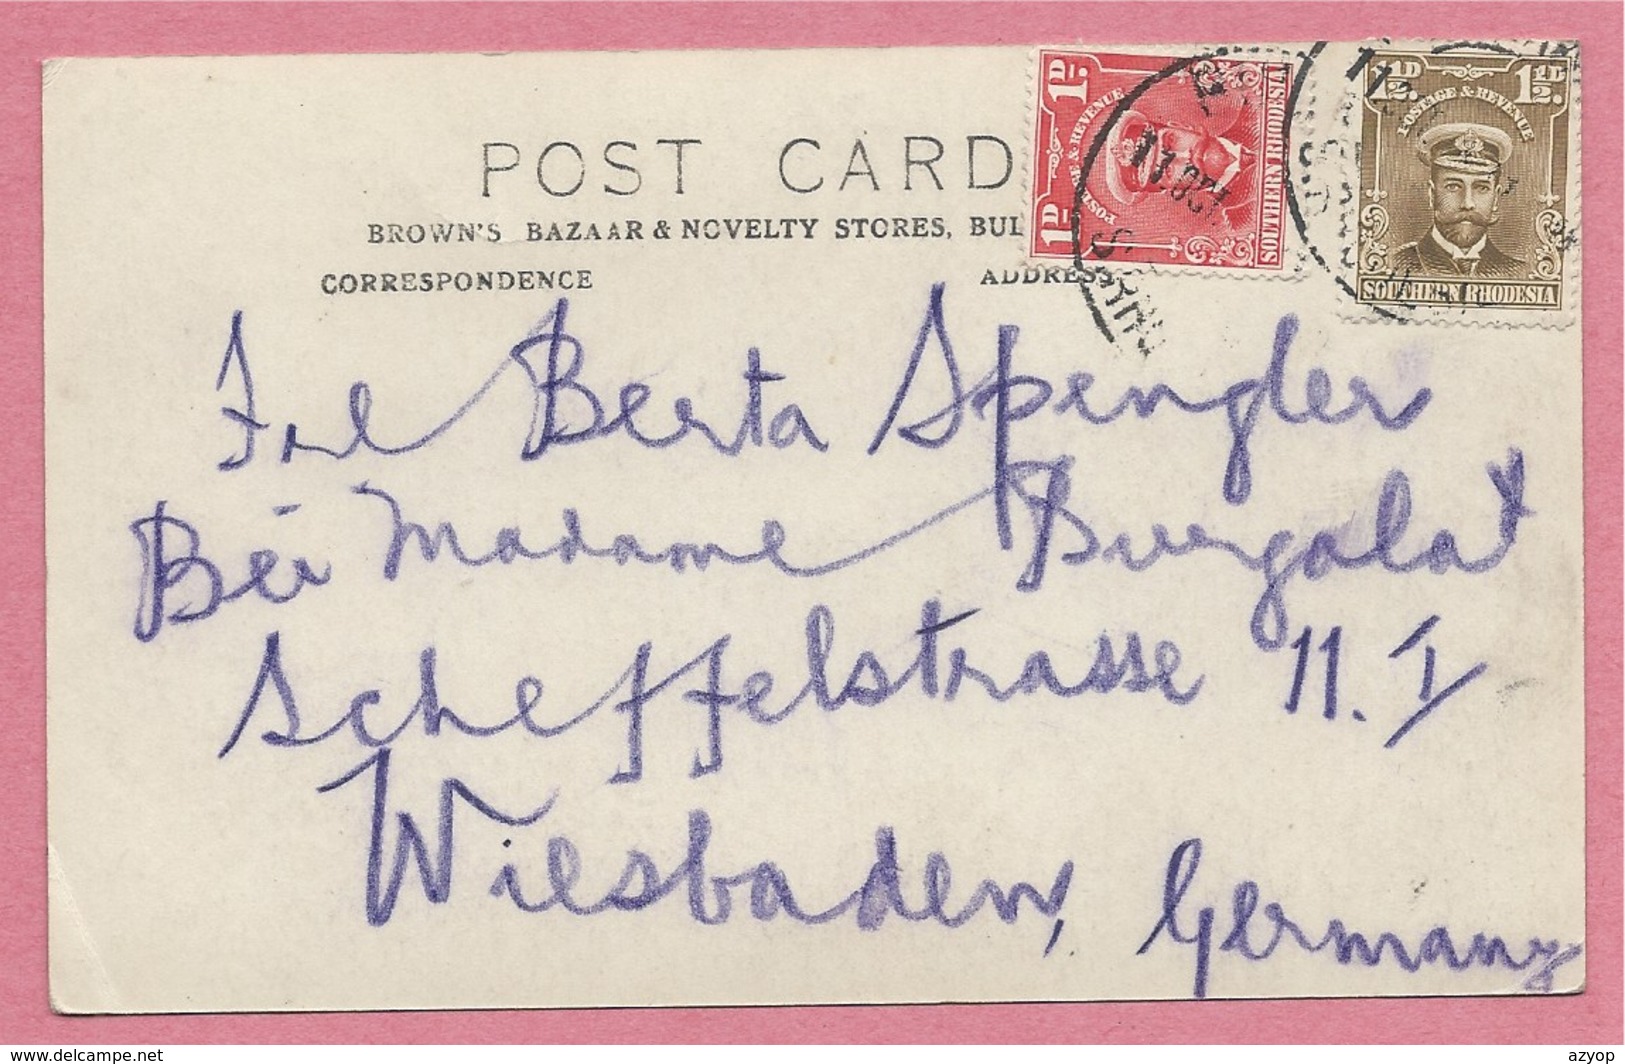 POST CARD
BROWN'S BAZAAR & NOVELTY STORES, BUL
CORRESPONDENCE ADDRESS
1D. POSTAGE & REVENUE 1D.
SOUTHERN RHODESIA
1½D. POSTAGE & REVENUE 1½D.
SOUTHERN RHODESIA
Frl Berta Spengler
Bei Madame Burgalat
Scheffelstrasse 11. I
Wiesbaden, Germany
https://www.delcampe.net
azyop